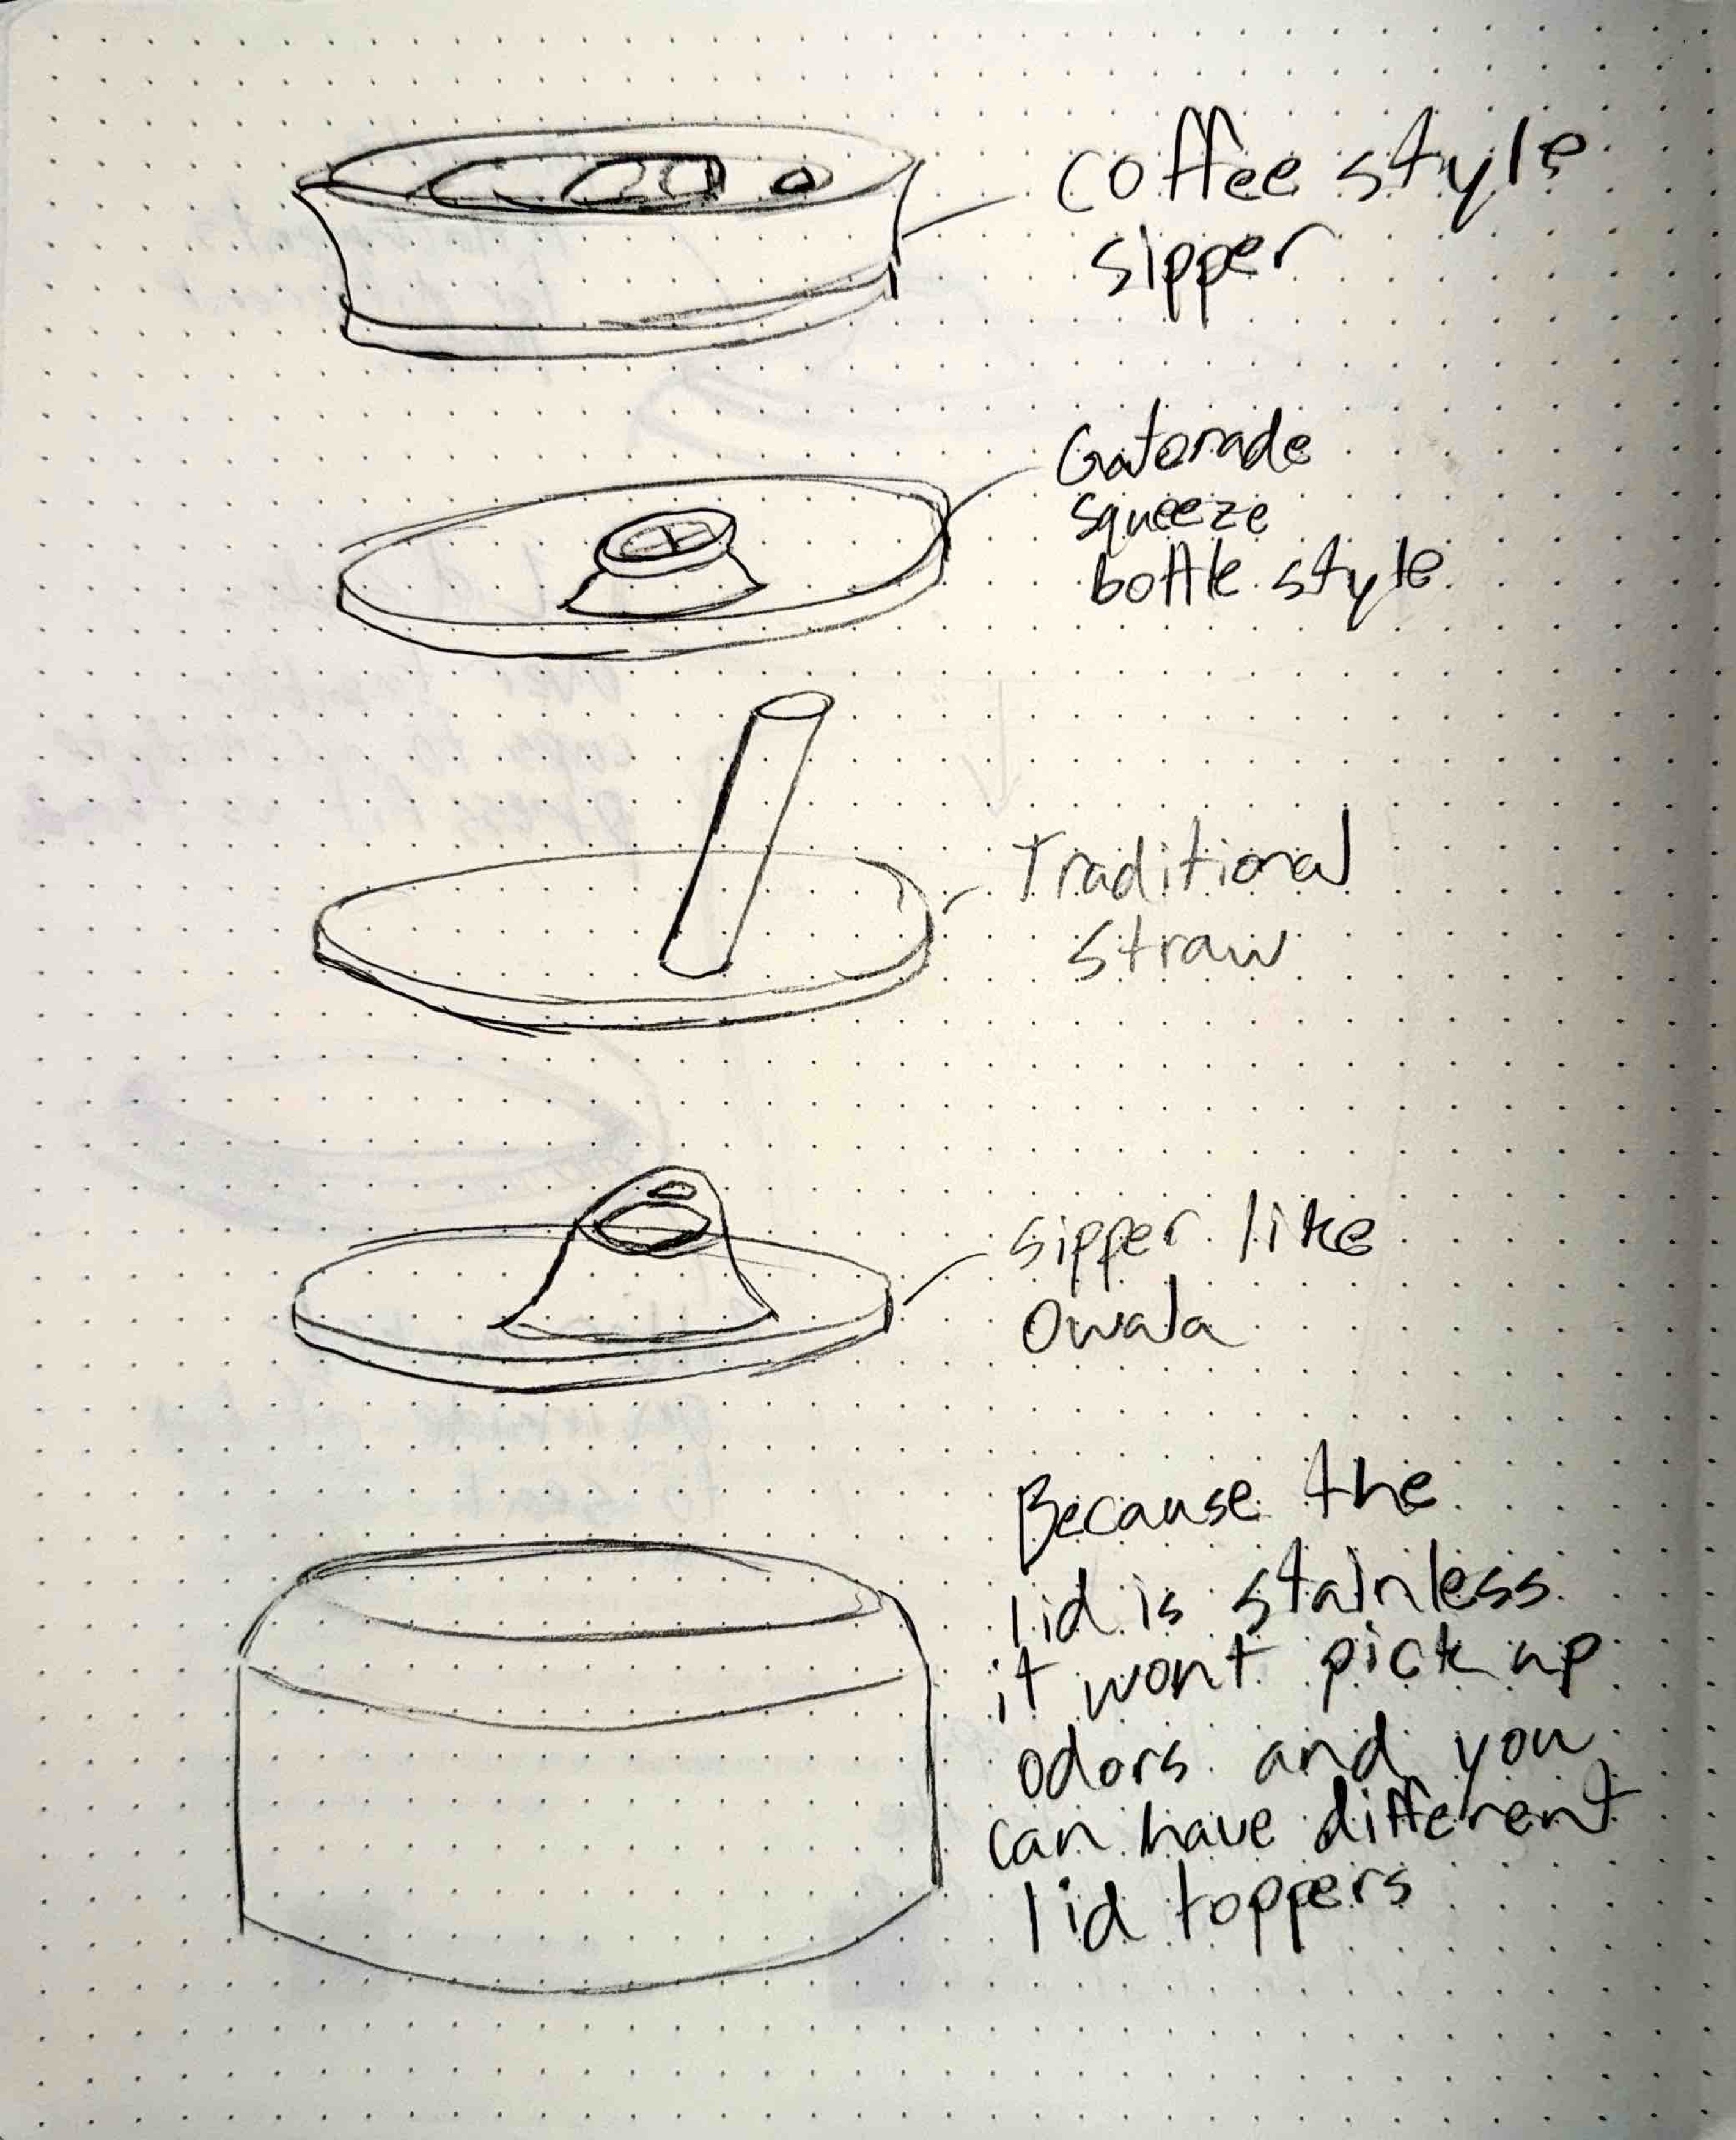 coffee style
sipper
Gatorade
squeeze
bottle style
Traditional
straw
sipper like
Owala
Because the
lid is stainless
it wont pick up
odors and you
can have different
lid toppers